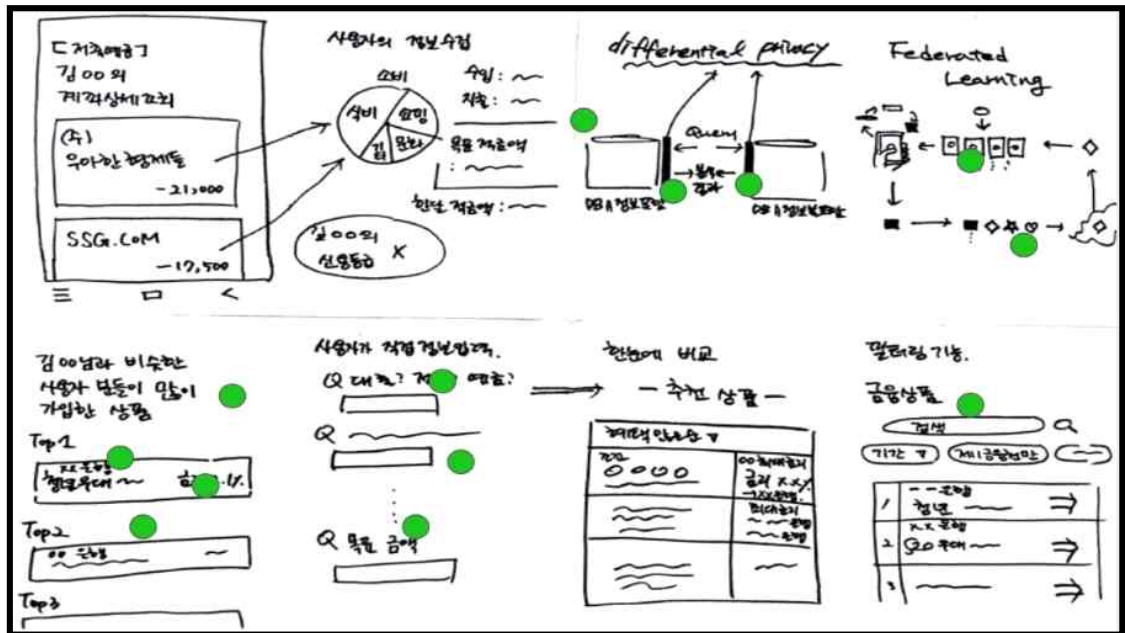 [저축예금]
김OO의
계좌상세조회
(주)
우아한형제들
-21,000
SSG.COM
-17,500
사용자의 정보수집
소비
식비
쇼핑
문화
수입:
지출:
목표 적금액
:
한달 적금액:
김OO의
신용등급 X
differential privacy
Query
분석
결과
Federated
Learning
김OO님과 비슷한
사용자 분들이 많이
가입한 상품
Top1
XX은행
청년우대
Top2
OO 은행
Top3
사용자가 직접 정보입력.
Q 대출? 예금?
Q
Q 목표 금액
한눈에 비교
- 추천 상품 -
혜택 많은순 ▼
금리 X.X%
필터링 기능.
금융상품
검색
기간 ▼
제1금융권만
1
--은행
청년
2
XX은행
우대
3